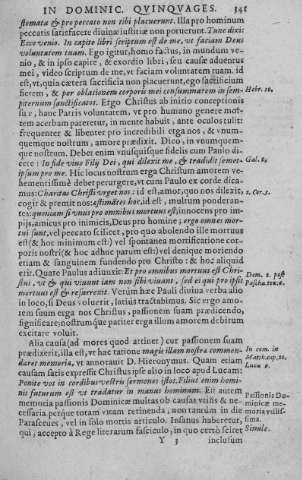 IN DOMINIC. QUINQUAGES. 341
stomata & pro peccato non tibi placuerunt. Illa pro hominum
peccatis satisfacere divinæ iustitiæ non poterunt. Tunc dixi:
Ecce venio. In capite libri scriptum est de me, vt faciam Deus
voluntatem tuam. Ego igitur, homo factus, in mundum ve-
nio, & in ipso capite, & exordio libri, seu causæ aduentus
mei, video scriptum de me, vt faciam voluntatem tuam. id
est, vt, quia cætera sacrificia non placuerunt, ego sacrificium
fierem, & per oblationem corporis mei consummatem in sem-
piternum sanctificatos. Ergo Christus ab initio conceptionis
suæ, hanc Patris voluntatem, vt pro humano genere mor-
tem acerbam pateretur, in mente habuit, ante oculos tulit:
frequenter & libenter pro incredibili erga nos, & vnum-
quemque nostrum, amore prædixit. Dico, in vnumquem-
que nostrum. Debet enim vnusquisque fidelis cum Paulo di-
cere: In fide viuo Filij Dei, qui dilexit me, & tradidit semet-
ipsum pro me. Hic locus nostrum erga Christum amorem ve-
hementissimè debet perurgere, vt cum Paulo ex corde dica-
mus: Charitas Christi vrget nos: id est amor, quo nos dilexit,
cogit & premit nos: æstimātes hoc, id est, multum ponderan-
tes: quoniam si vnus pro omnibus mortuus est, innocens pro im-
pijs, amicus pro inimicis, Deus pro homine, ergo omnes mor-
tui sunt, vel peccato scilicet, pro quo abolendo ille mortuus
est (& hoc minimum est) vel spontanea mortificatione cor-
poris scilicet (& hoc adhuc parum est) vel denique moriendo
etiam & sanguinem fundendo pro Christo: & hoc aliquid
erit. Quate Paulus adiunxit: Et pro omnibus mortuus est Chri-
stus, vt & qui viuunt iam non sibi viuant, sed ei qui pro ipsis
mortuus est & resurrexit. Verùm hæc Pauli diuina verba alio
in loco, si Deus voluerit, latius tractabimus. Sic ergo amo-
rem suum erga nos Christus, passionem suam prædicendo,
significare, nostrumque pariter erga illum amorem debitum
excitare voluit.
Alia causa (ad mores quod attinet) cur passionem suam
prædixerit, illa est, vt hac ratione magis illam nostræ commen-
daret memoriæ, vt annotauit D. Hieronymus. Quam etiam
causam satis expressit Christus ipse alio in loco apud Lucam:
Ponite vos in cordibus vestris sermones istos. Filius enim homi-
nis futurum est vt tradatur in manus hominum. Est autem
memoria passionis Dominicæ multas ob causas vtilis & ne-
cessaria, perque totam vitam retinenda, non tantùm in die
Parasceues, vel in solo mortis articulo. Insanus haberetur,
qui, accepto à Rege literarum fasciculo, in quo certò sciret
Y 3 inclusum
Hebr. 10.
Gal. 2.
2. Cor. 5.
Dom. 2. post
Pascha. tex. 6.
In com. in
Matth. cap. 20.
Luca 9.
Passionis Do-
minicæ me-
moria vtilis-
sima.
Simile.